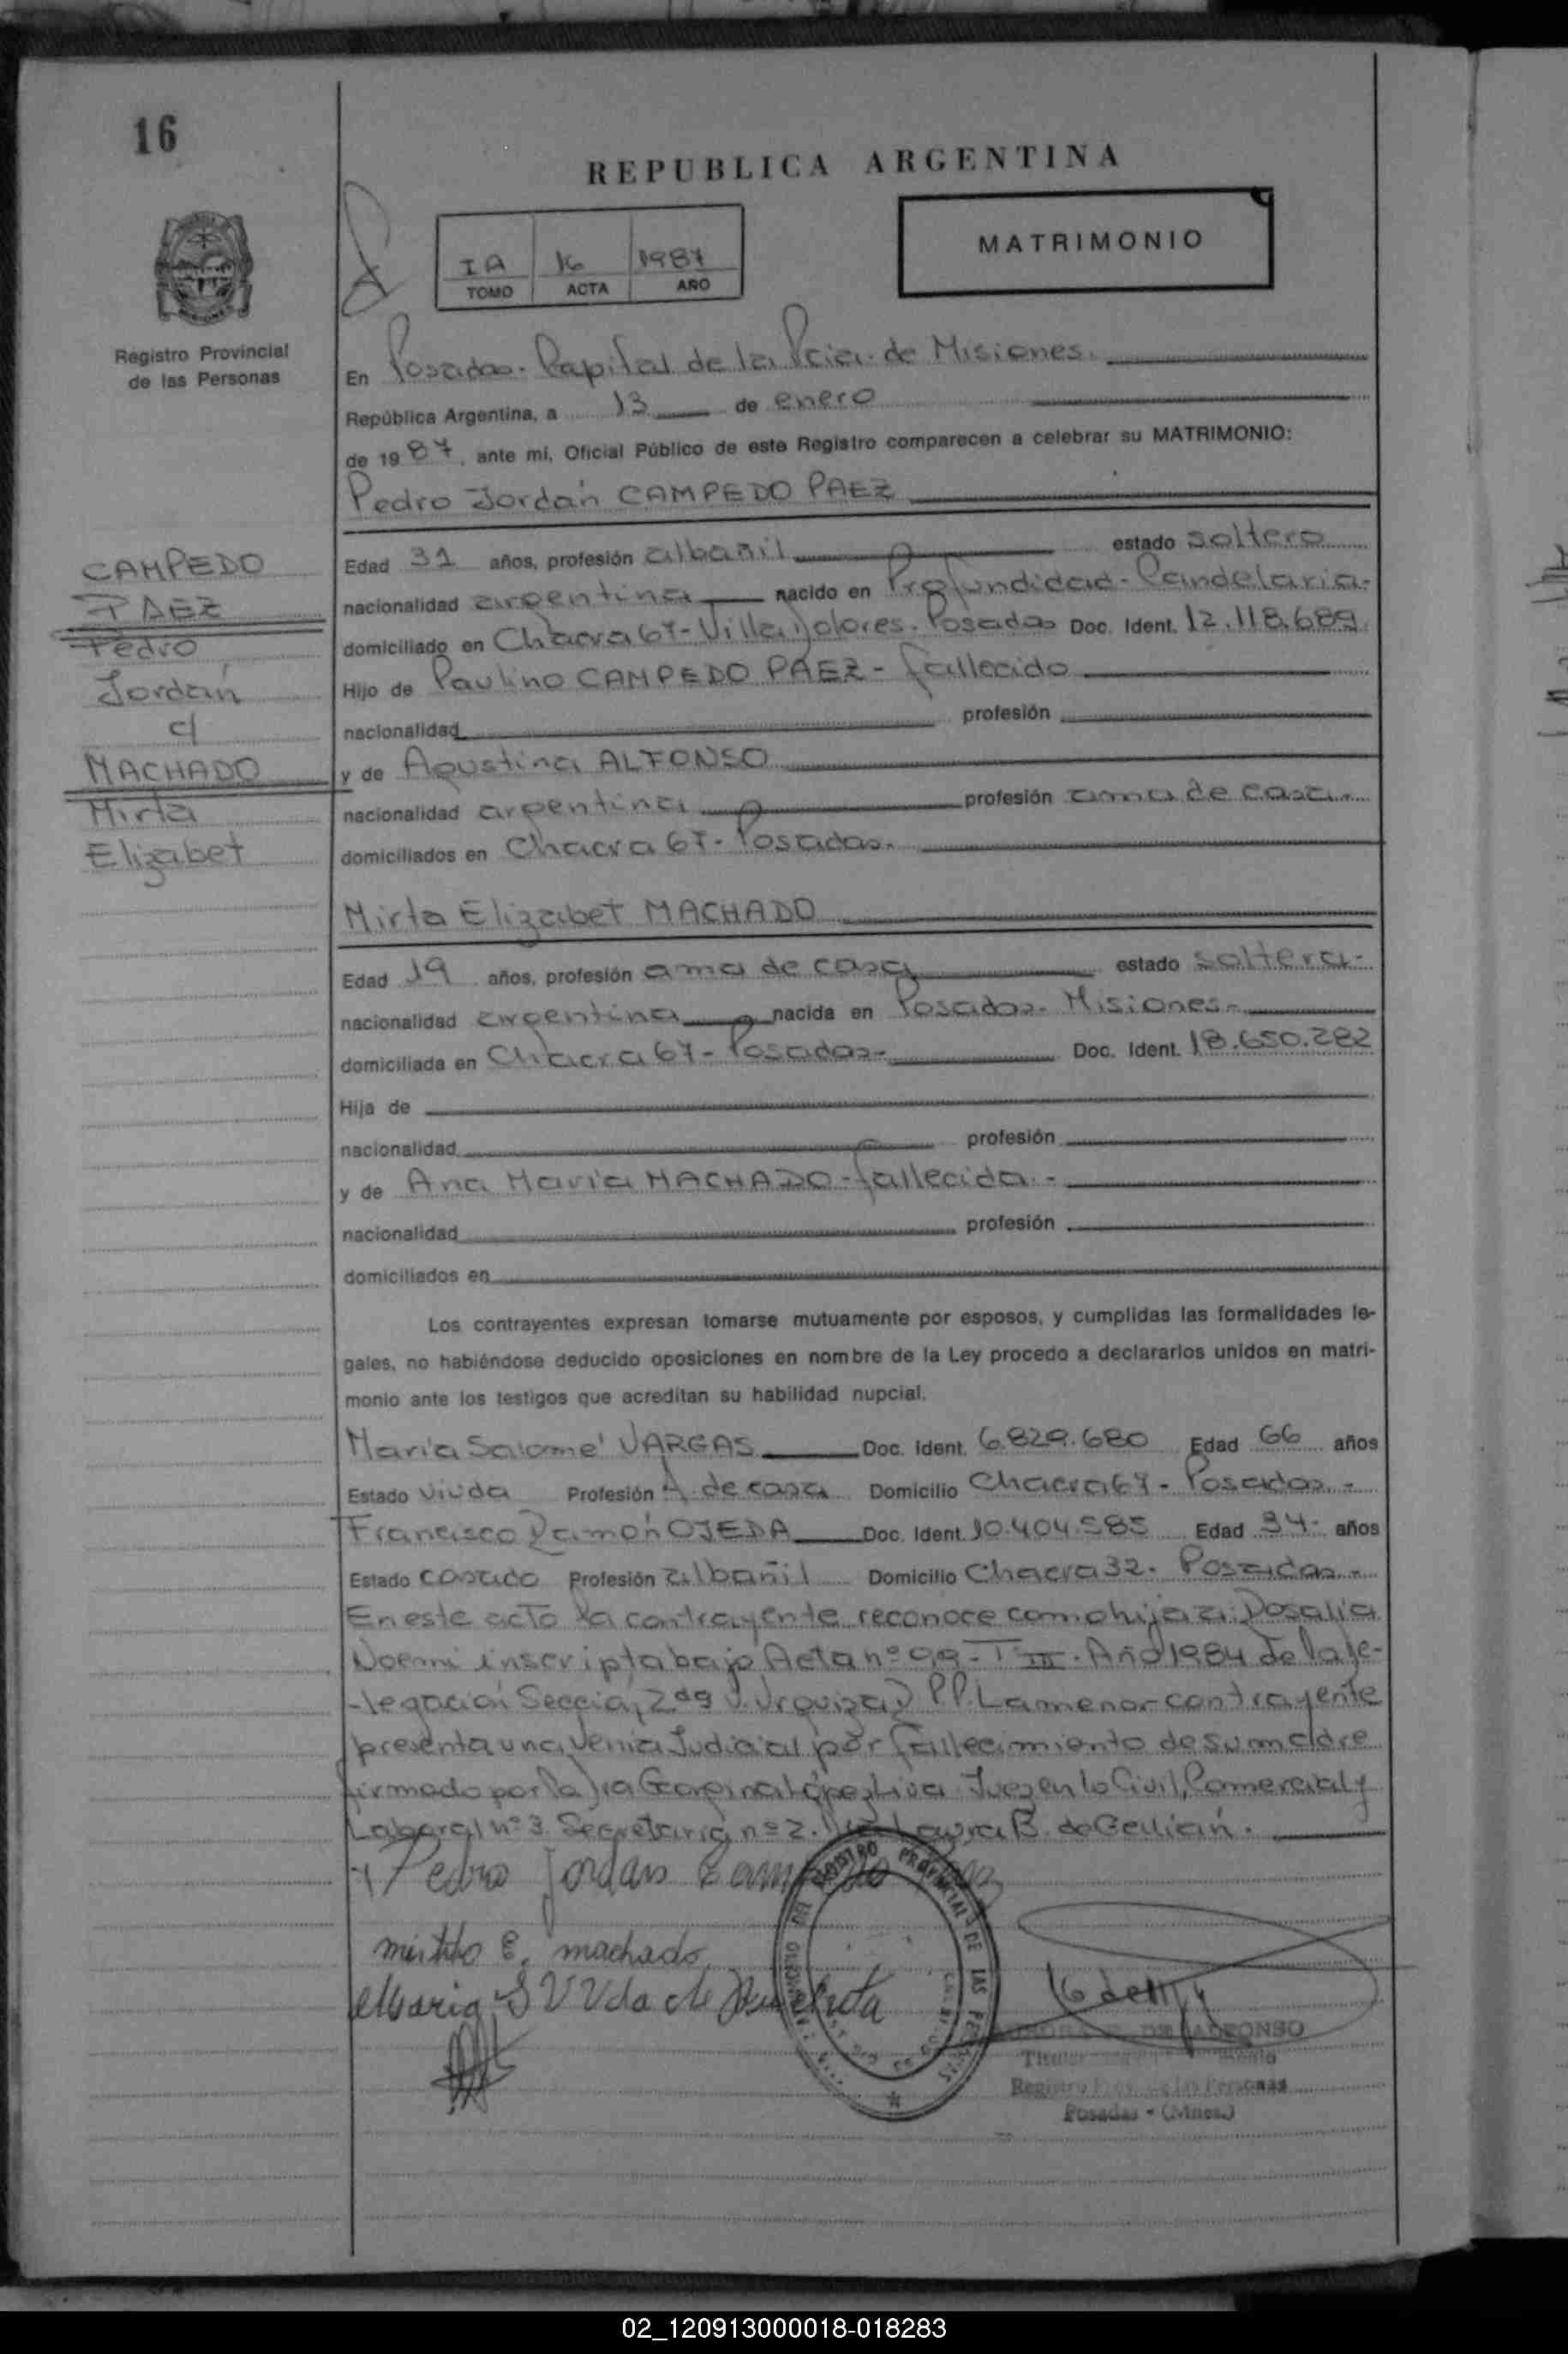 16
REPUBLICA ARGENTINA
MATRIMONIO
IA 16 1987
TOMO ACTA AÑO
Registro Provincial
de las Personas
En Posadas- Capital de la Pcia. de Misiones.
República Argentina, a 13 de enero
de 1987, ante mi, Oficial Público de este Registro comparecen a celebrar su MATRIMONIO:
Pedro Jordán CAMPEDO PAEZ
CAMPEDO
PAEZ
Pedro
Jordán
c/
MACHADO
Mirta
Elizabet
Edad 31 años, profesión albañil estado soltero
nacionalidad argentina nacido en Profundidad- Candelaria-
domiciliado en Chacra 67- Villa Dolores- Posadas Doc. Ident. 12.118.689
Hijo de Paulino CAMPEDO PAEZ - fallecido
nacionalidad profesión
y de Agustina ALFONSO
nacionalidad argentina profesión ama de casa.
domiciliados en Chacra 67- Posadas.
Mirta Elizabet MACHADO
Edad 19 años, profesión ama de casa estado soltera-
nacionalidad argentina nacida en Posadas- Misiones-
domiciliada en Chacra 67- Posadas- Doc. Ident. 18.650.282
Hija de
nacionalidad profesión
y de Ana María MACHADO- fallecida.-
nacionalidad profesión
domiciliados en
Los contrayentes expresan tomarse mutuamente por esposos, y cumplidas las formalidades le-
gales, no habiéndose deducido oposiciones en nombre de la Ley procedo a declararlos unidos en matri-
monio ante los testigos que acreditan su habilidad nupcial.
María Salomé VARGAS Doc. Ident. 6.829.680 Edad 66 años
Estado viuda Profesión A. de casa Domicilio Chacra 67- Posadas.-
Francisco Ramón OJEDA Doc. Ident. 10.404.585 Edad 34- años
Estado casado Profesión albañil Domicilio Chacra 32- Posadas.-
En este acto la contrayente reconoce como hija a: Rosalia
Noemi inscripta bajo Acta nº 99- T III- Año 1984 de la De-
-legación Sección 2da J. Urquiza P.P. La menor contrayente
presenta una Venia Judicial por fallecimiento de su madre
firmado por la Dra Georgina López Liva Juez en lo Civil, Comercial y
Laboral nº 3 Secretaria nº 2. Laura B. de
Pedro Jordan Campedo Paez
E. machado
Maria S V Vda de
REGISTRO PROVINCIAL DE LAS PERSONAS
DE ALFONSO
Titular
Registro Prov. de las Personas
Posadas - (Mnes.)
02_120913000018-018283